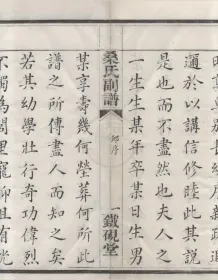 邇於以講信修睦此其說
是也而不盡然也夫人之
一生生某年卒某日生男
桑氏副譜
序
一
鐵硯堂
某享壽幾何塋葬何所此
譜之所傳盡人而知之矣
若其幼學壯行奇功偉烈
不獨為閭里寵卹且有光